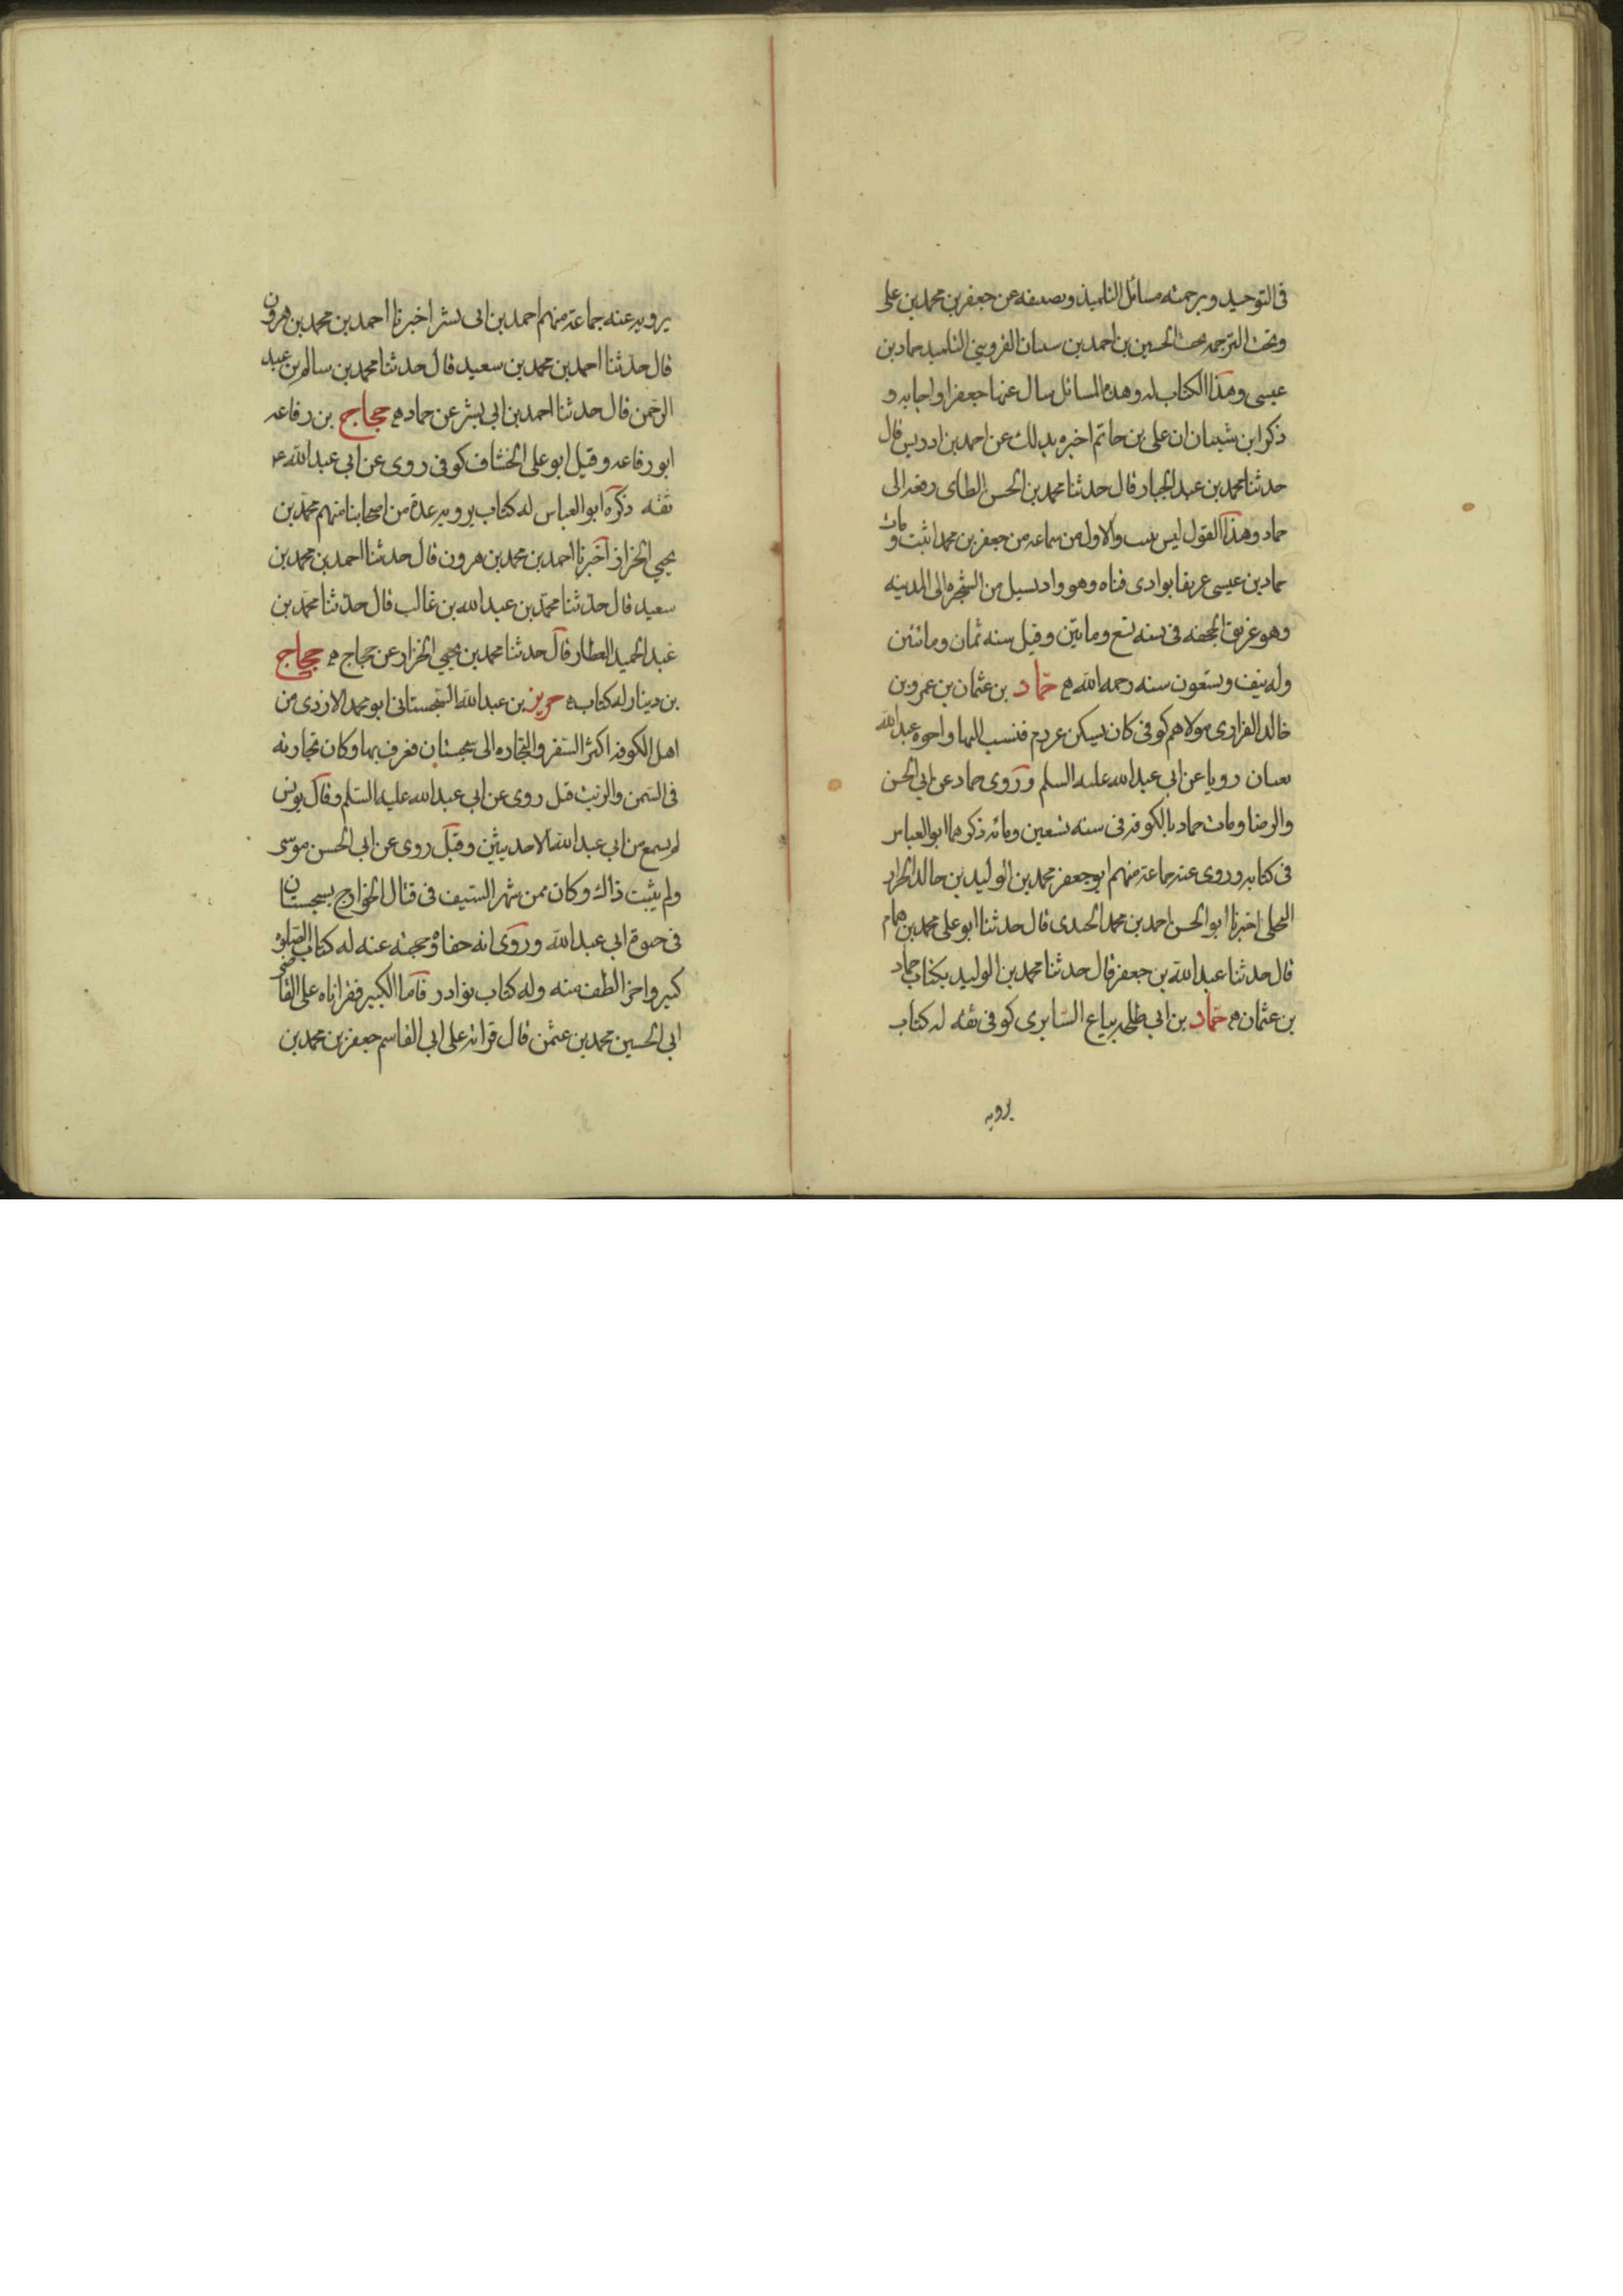 فى التوحيد وترجمته مسائل التلميذ وتصنيفه عن جعفر بن محمد بن على
وتحت الترجمه بخط الحسين بن احمد بن شيبان القزوينى التلميذ حماد بن
عيسى وهذا الكتاب له وهذه المسائل سال عنها جعفرا واجابه و
ذكر ابن شيبان ان على بن حاتم اخبره بذلك عن احمد بن ادريس قال
حدثنا محمد بن عبد الجبار قال حدثنا محمد بن الحسن الطاى رفعه الى
حماد وهذا القول ليس بثبت والاول من سماعه من جعفر بن محمد اثبت ومات
حماد بن عيسى غريقا بوادى قناه وهو واد يسيل من الشجره الى المدينه
وهو غريق الجحفه فى سنه تسع وماتين وقيل سنه ثمان ومائتين
وله نيف وتسعون سنه رحمه الله حمّاد بن عثمان بن عمرو بن
خالد الفزارى مولاهم كوفى كان يسكن عرزم فنسب اليها واخوه عبد الله
رويا عن ابى عبد الله عليه السلم وروى حماد عن ابى الحسن
والرضا ومات حماد بالكوفه فى سنه تسعين ومائه ذكرهما ابو العباس
فى كتابه وروى عنه جماعة منهم ابو جعفر محمد بن الوليد بن خالد الخزاز
البجلى اخبرنا ابو الحسن احمد بن محمد الجندى قال حدثنا ابو على محمد بن همام
قال حدثنا عبد الله بن جعفر قال حدثنا محمد بن الوليد بكتاب حماد
بن عثمان حمّاد بن ابى طلحه بياع السّابرى كوفى ثقه له كتاب
يرويه
يرويه عنه جماعة منهم احمد بن ابى بشر اخبرنا احمد بن محمد بن هرون
قال حدّثنا احمد بن محمد بن سعيد قال حدثنا محمد بن سالم بن عبد
الرحمن قال حدثنا احمد بن ابى بشر عن حماد حجاج بن رفاعه
ابو رفاعه وقيل ابو على الخشاف كوفى روى عن ابى عبد الله ع
ثقه ذكره ابو العباس له كتاب يرويه عدة من اصحابنا منهم محمّد بن
يحيى الخزاز اخبرنا احمد بن محمد بن هرون قال حدثنا احمد بن محمد بن
سعيد قال حدّثنا محمّد بن عبد الله بن غالب قال حدّثنا محمّد بن
عبد الحميد العطار قال حدثنا محمد بن يحيى الخزاز عن حجاج حجاج
بن دينار له كتاب حريز بن عبد الله السّجستانى ابو محمد الازدى من
اهل الكوفه اكثر السّفر والتجاره الى سجستان فعرف بها وكان تجارته
فى السّمن والزيت قيل روى عن ابى عبد الله عليه السّلم وقال يونس
لم يسمع من ابى عبد الله الا حديثين وقيل روى عن ابى الحسن موسى
ولم يثبت ذاك وكان ممن شهر السّيف فى قتال الخوارج بسجستان
فى حيوة ابى عبد الله وروى انه جفاه وحجبه عنه له كتاب الصّلوه
كبير واخر الطف منه وله كتاب نوادر فاما الكبير فقراناه على القاضى
ابى الحسين محمد بن عثمن قال قراته على ابى القاسم جعفر بن محمد بن